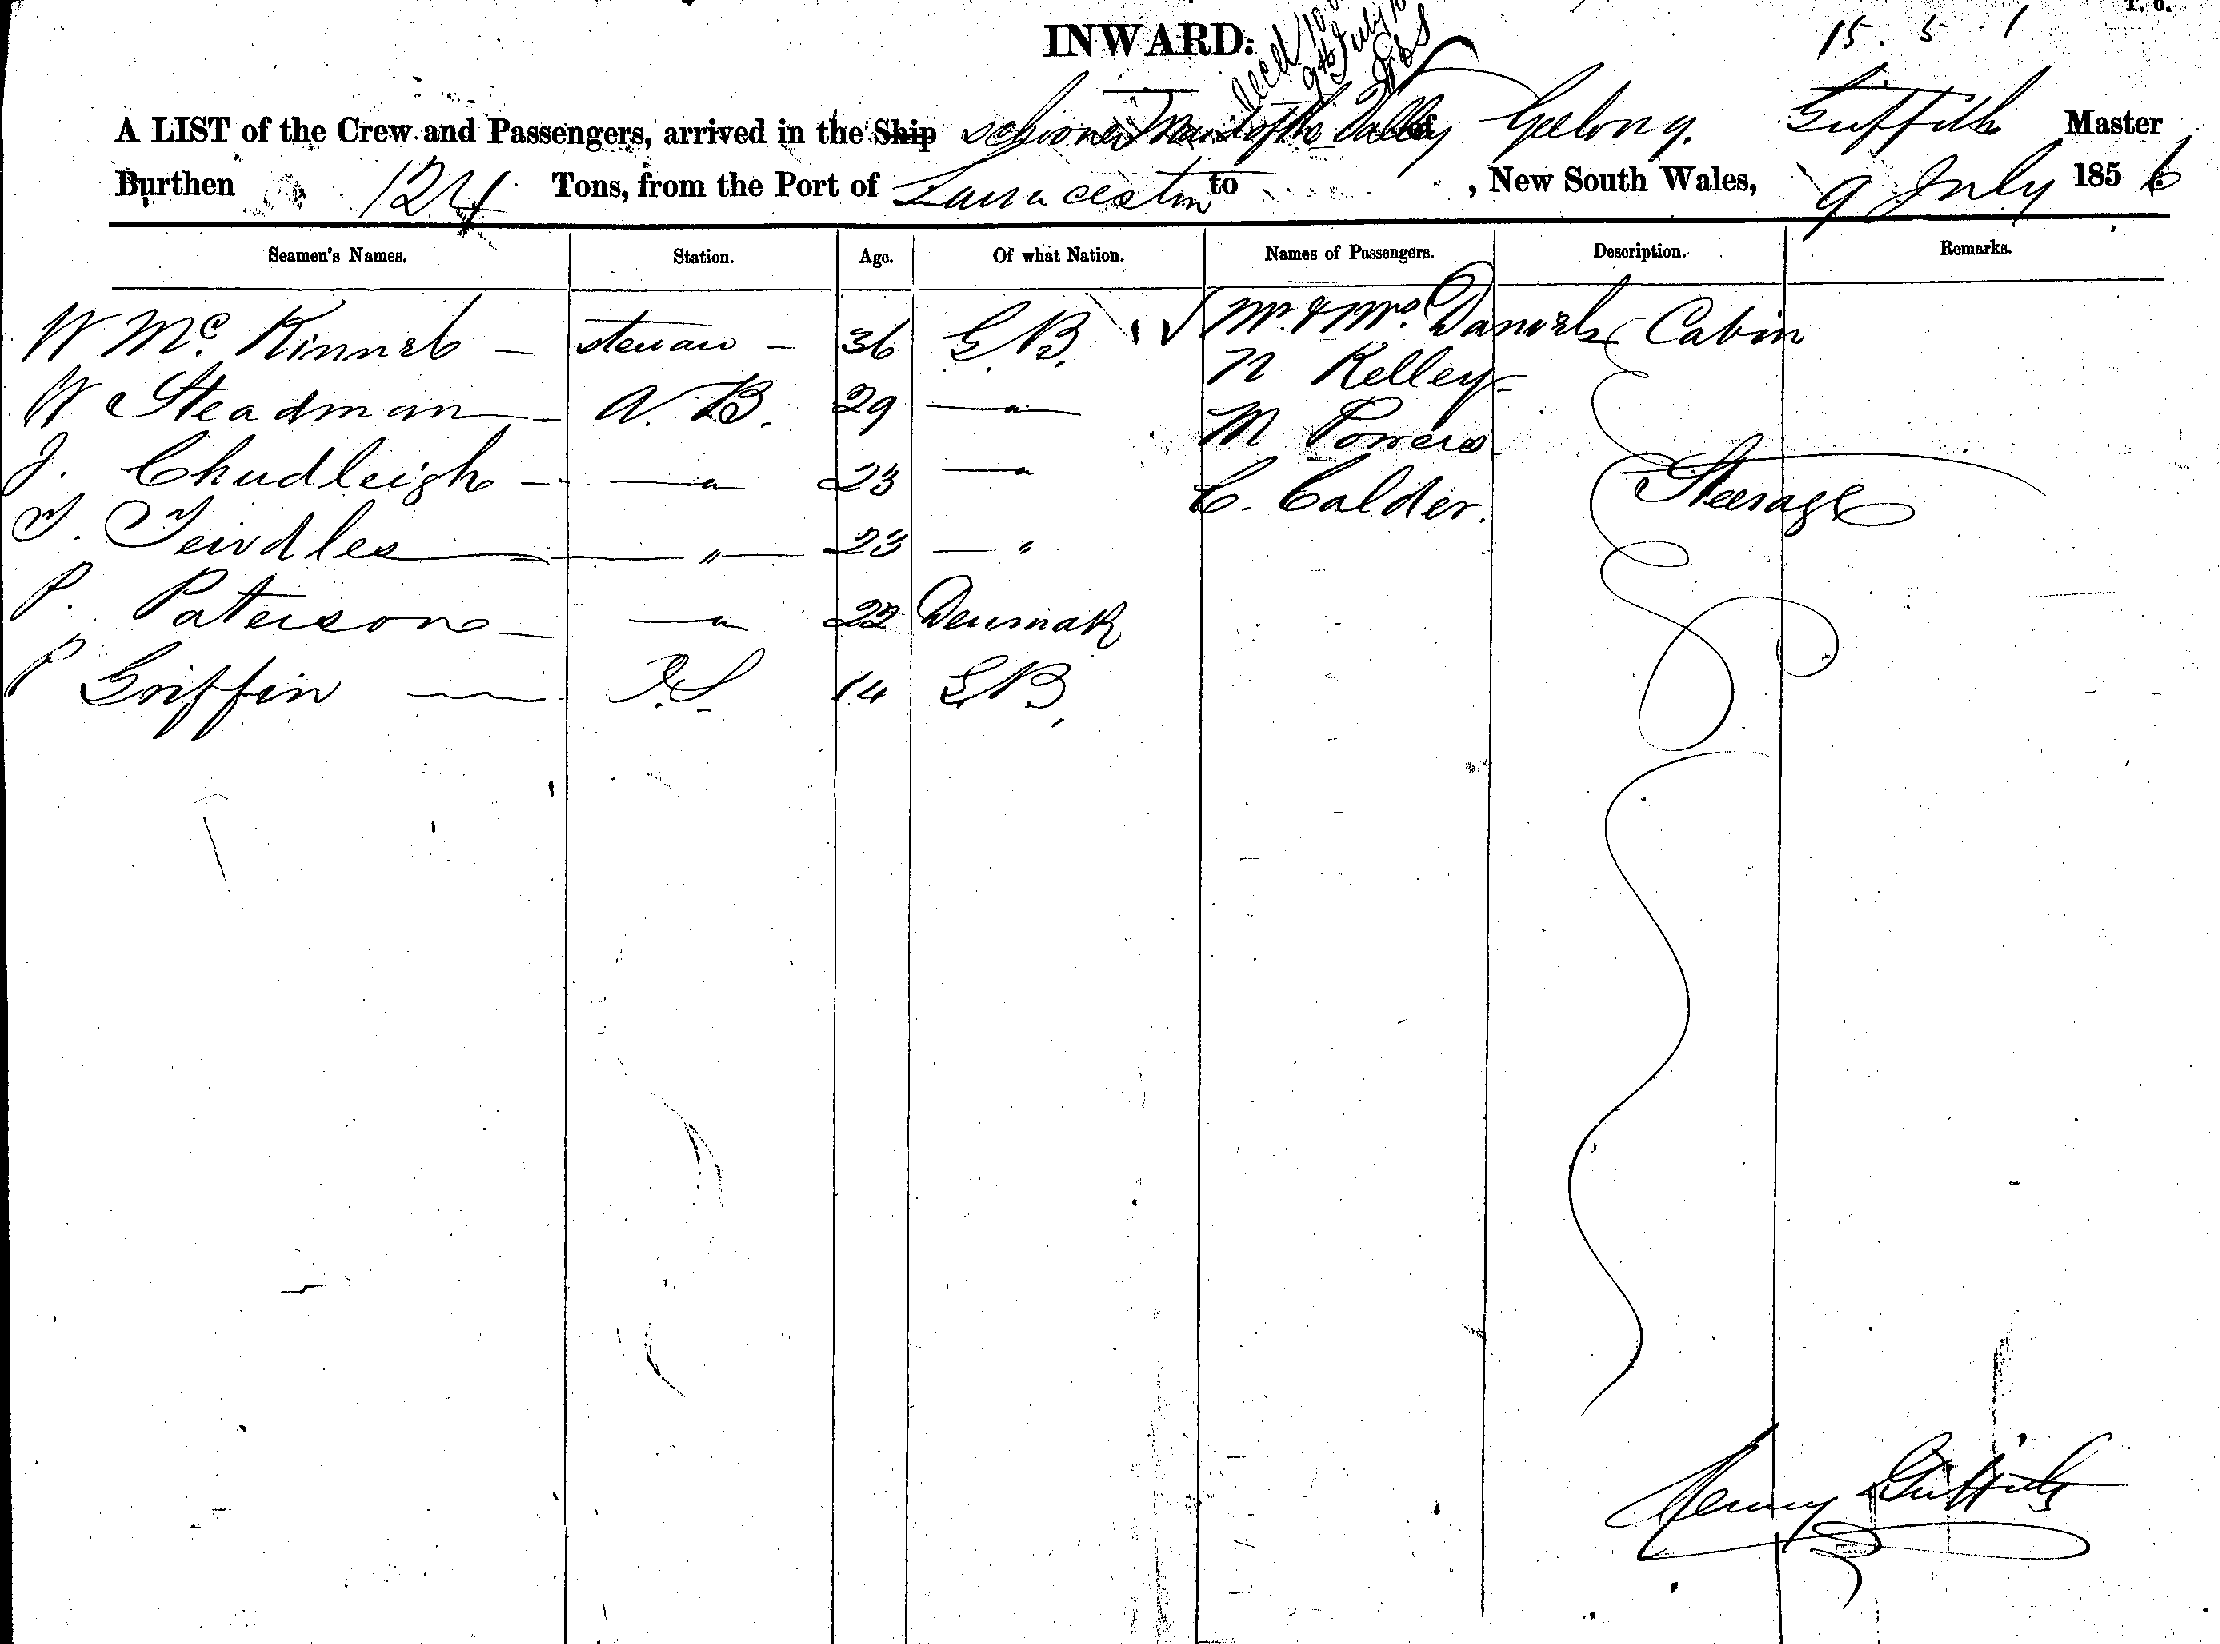 INWARD:
15. 5. 1
9th July
A LIST of the Crew and Passengers, arrived in the Ship Schooner Maid of the Valley of Geelong. Griffith Master
Burthen 124 Tons, from the Port of Launceston to , New South Wales, 9 July 1856
Seamen's Names. Station. Age. Of what Nation. Names of Passengers. Description. Remarks.
W Mc. Kinnel — 36 G.B. Mr. & Mrs. Daniels Cabin
W Steadman — A.B. 29 — " N Kelley
J. Chudleigh — — " 23 — " M Powers
— " — 23 — " C. Calder. Steerage
P. Paterson — — " 22 Denmak
P Griffin — 14 G.B.
Henry Griffith